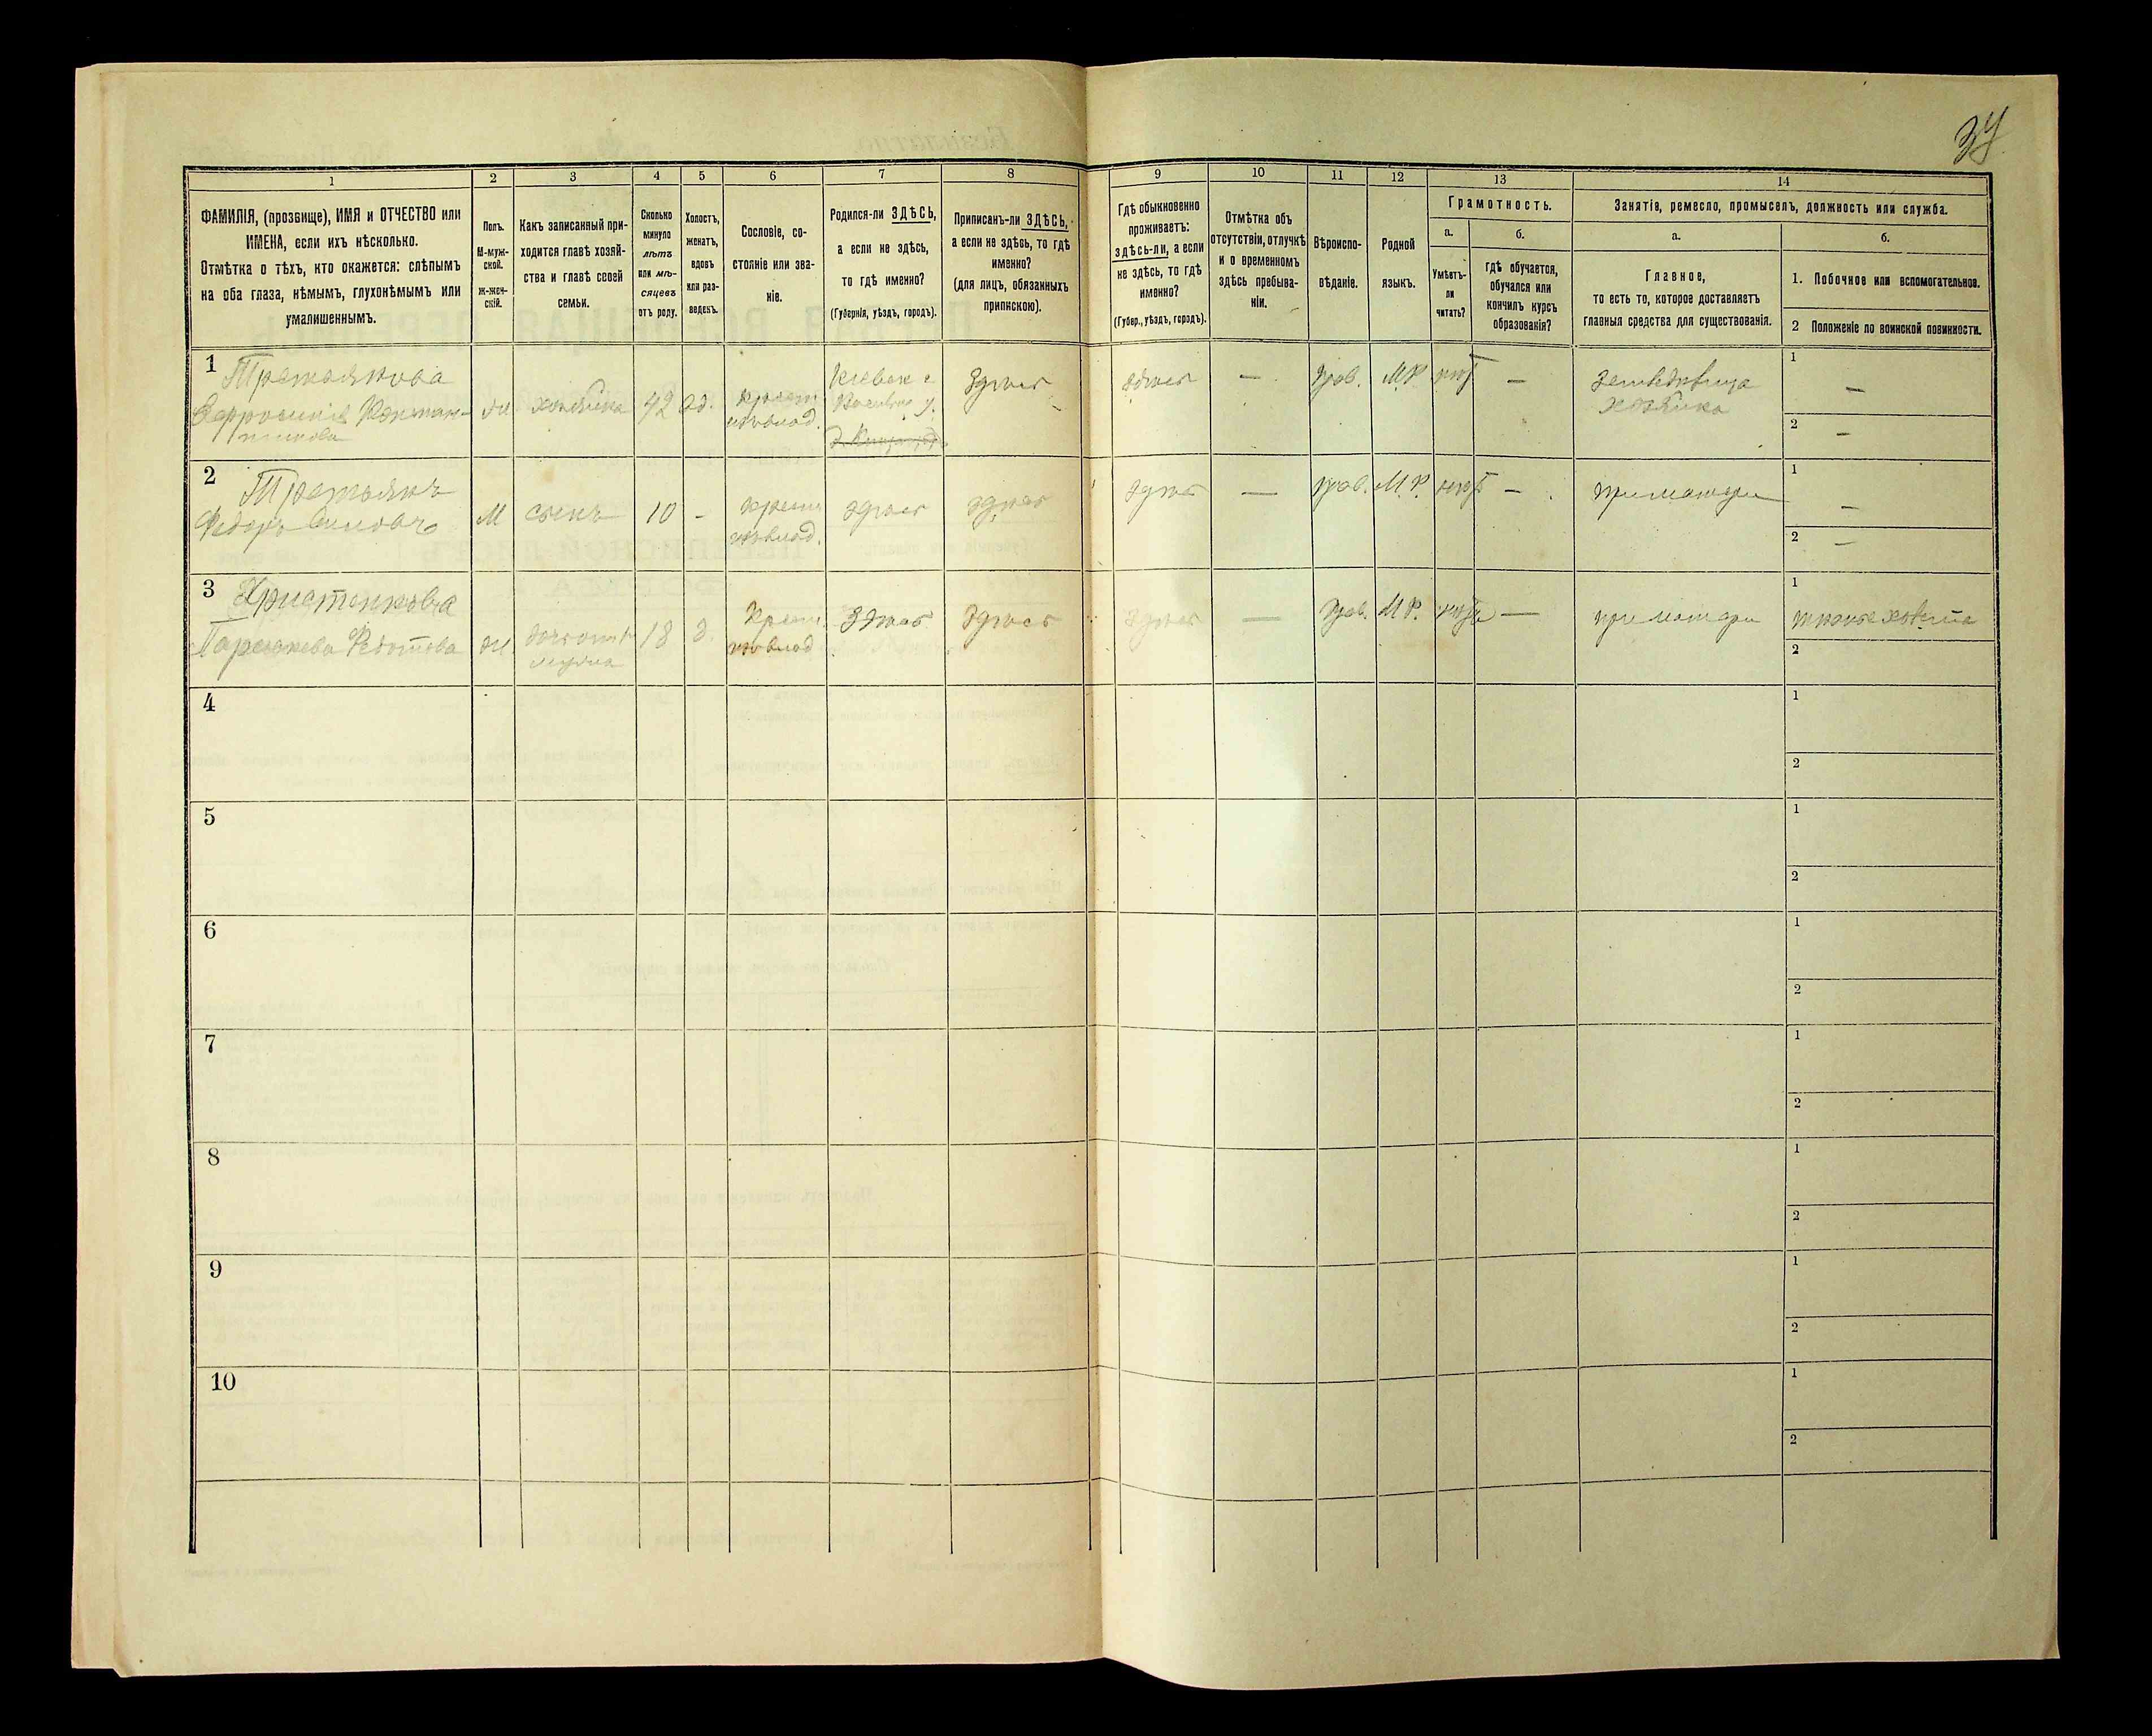 34
1
2
3
4
5
6
7
8
9
10
11
12
13
14
ФАМИЛІЯ, (прозвище), ИМЯ и ОТЧЕСТВО или
ИМЕНА, если ихъ нѣсколько.
Отмѣтка о тѣхъ, кто окажется: слѣпымъ
на оба глаза, нѣмымъ, глухонѣмымъ или
умалишеннымъ.
Полъ.
М-муж-
ской.
Ж-жен-
скій.
Какъ записанный при-
ходится главѣ хозяй-
ства и главѣ своей
семьи.
Сколько
минуло
лѣтъ
или мѣ-
сяцевъ
отъ роду.
Холостъ,
женатъ,
вдовъ
или раз-
веденъ.
Сословіе, со-
стояніе или зва-
ніе.
Родился-ли ЗДѢСЬ,
а если не здѣсь,
то гдѣ именно?
(Губернія, уѣздъ, городъ).
Приписанъ-ли ЗДѢСЬ,
а если не здѣсь, то гдѣ
именно?
(для лицъ, обязанныхъ
припискою).
Гдѣ обыкновенно
проживаетъ:
здѣсь-ли, а если
не здѣсь, то гдѣ
именно?
(Губер., уѣздъ, городъ).
Отмѣтка объ
отсутствіи, отлучкѣ
и о временномъ
здѣсь пребыва-
ніи.
Вѣроиспо-
вѣданіе.
Родной
языкъ.
Грамотность.
а.
Умѣетъ-
ли
читать?
б.
гдѣ обучается,
обучался или
кончилъ курсъ
образованія?
Занятіе, ремесло, промыселъ, должность или служба.
а.
Главное,
то есть то, которое доставляетъ
главныя средства для существованія.
б.
1. Побочное или вспомогательное.
2 Положеніе по воинской повинности.
1
Третьякова
ж
хозяйка
42
вд.
здѣсь
здѣсь
—
прав.
М.Р.
нѣтъ
—
хозяйка
1
—
2
—
2
Третьякъ
Федоръ
М
сынъ
10
-
здѣсь
здѣсь
здѣсь
—
прав.
М.Р.
нѣтъ
—
при матери
1
—
2
—
3
Параскева Федотова
ж
18
д.
здѣсь
здѣсь
здѣсь
—
прав.
М.Р.
—
при матери
1
2
4
1
2
5
1
2
6
1
2
7
1
2
8
1
2
9
1
2
10
1
2